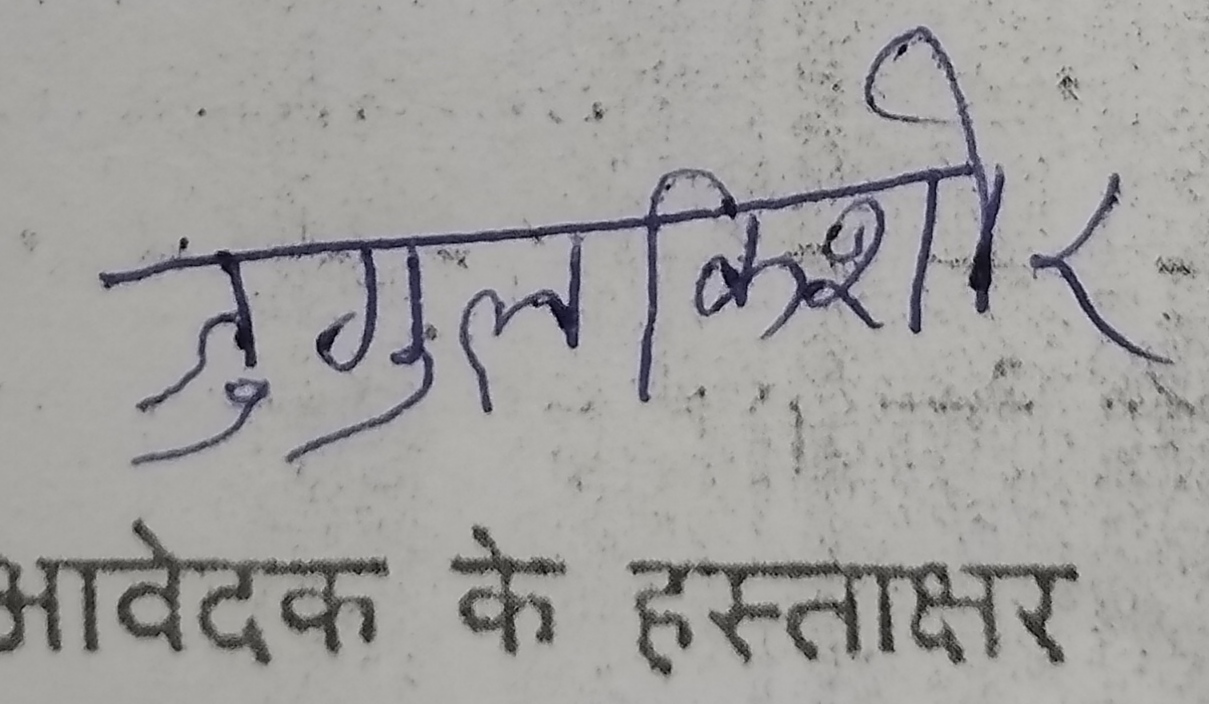 जुगुल किशोर
आवेदक के हस्ताक्षर